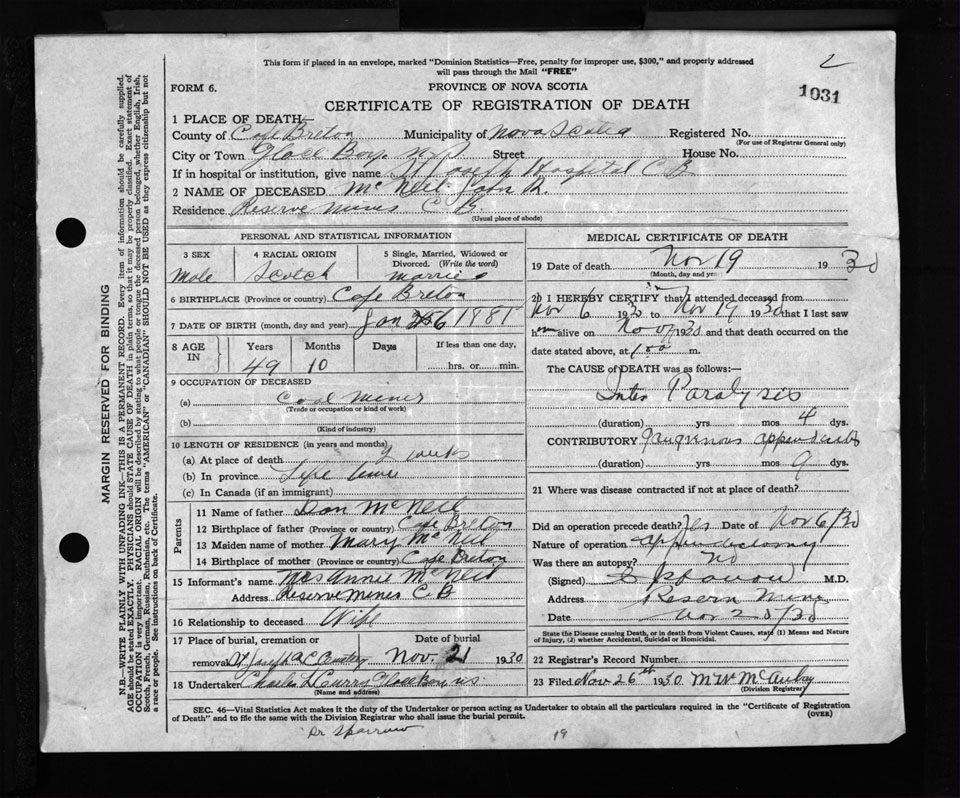 This form if placed in an envelope, marked "Dominion Statistics—Free, penalty for improper use, $300," and properly addressed
will pass through the Mail "FREE"
2
1031
FORM 6.
PROVINCE OF NOVA SCOTIA
CERTIFICATE OF REGISTRATION OF DEATH
1 PLACE OF DEATH—
County of Cape Breton Municipality of Nova Scotia Registered No.
(For use of Registrar General only)
City or Town Glace Bay. N.S Street House No.
If in hospital or institution, give name St Joseph Hospital C B
2 NAME OF DECEASED McNeil John R.
Residence Reserve Mines C. B.
(Usual place of abode)
PERSONAL AND STATISTICAL INFORMATION
3 SEX
4 RACIAL ORIGIN
5 Single, Married, Widowed or
Divorced. (Write the word)
Male Scotch
6 BIRTHPLACE (Province or country) Cape Breton
7 DATE OF BIRTH (month, day and year) Jan 1881
8 AGE IN
Years Months Days If less than one day,
49 10 hrs. or min.
9 OCCUPATION OF DECEASED
(a) Coal Miner
(Trade or occupation or kind of work)
(b)
(Kind of industry)
10 LENGTH OF RESIDENCE (in years and months)
(a) At place of death 2 weeks
(b) In province Life time
(c) In Canada (if an immigrant)
Parents
11 Name of father Dan McNeil
12 Birthplace of father (Province or country) Cape Breton
13 Maiden name of mother Mary McNeil
14 Birthplace of mother (Province or country) Cape Breton
15 Informant's name Mrs Annie McNeil
Address Reserve Mines C. B
16 Relationship to deceased Wife
17 Place of burial, cremation or Date of burial
removal St Joseph Nov. 21 1930
18 Undertaker Charles L Curry Glace Bay NS
(Name and address)
MEDICAL CERTIFICATE OF DEATH
19 Date of death Nov 19 1930
(Month, day and year)
20 I HEREBY CERTIFY that I attended deceased from
Nov 6 1930 to Nov 19 1930 that I last saw
him alive on Nov 1930 and that death occurred on the
date stated above, at 1.00 m.
The CAUSE of DEATH was as follows:—
Paralysis
(duration) yrs mos 4 dys.
CONTRIBUTORY Gangrenous appendicitis
(duration) yrs mos 9 dys.
21 Where was disease contracted if not at place of death?
Did an operation precede death? Yes Date of Nov 6/30
Nature of operation appendectomy
Was there an autopsy? No
(Signed) Sparrow M.D.
Address Reserve Mines
Date Nov 20/30
State the Disease causing Death, or in death from Violent Causes, state (1) Means and Nature
of Injury, (2) whether Accidental, Suicidal or Homicidal.
22 Registrar's Record Number
23 Filed Nov 26th 1930 M W McAulay
(Division Registrar)
SEC. 46—Vital Statistics Act makes it the duty of the Undertaker or person acting as Undertaker to obtain all the particulars required in the "Certificate of Registration
of Death" and to file the same with the Division Registrar who shall issue the burial permit.
(OVER)
Dr Sparrow
19
MARGIN RESERVED FOR BINDING
N.B.—WRITE PLAINLY WITH UNFADING INK—THIS IS A PERMANENT RECORD. Every item of information should be carefully supplied.
AGE should be stated EXACTLY. PHYSICIANS should STATE CAUSE OF DEATH in plain terms, so that it may be properly classified. Exact statement of
OCCUPATION is very important. RACIAL ORIGIN will be described by stating to what people or tongue the deceased person belonged, whether English, Irish,
Scotch, French, German, Russian, Ruthenian, etc. The terms "AMERICAN" or "CANADIAN" SHOULD NOT BE USED as they express citizenship but not
a race or people. See instructions on back of Certificate.